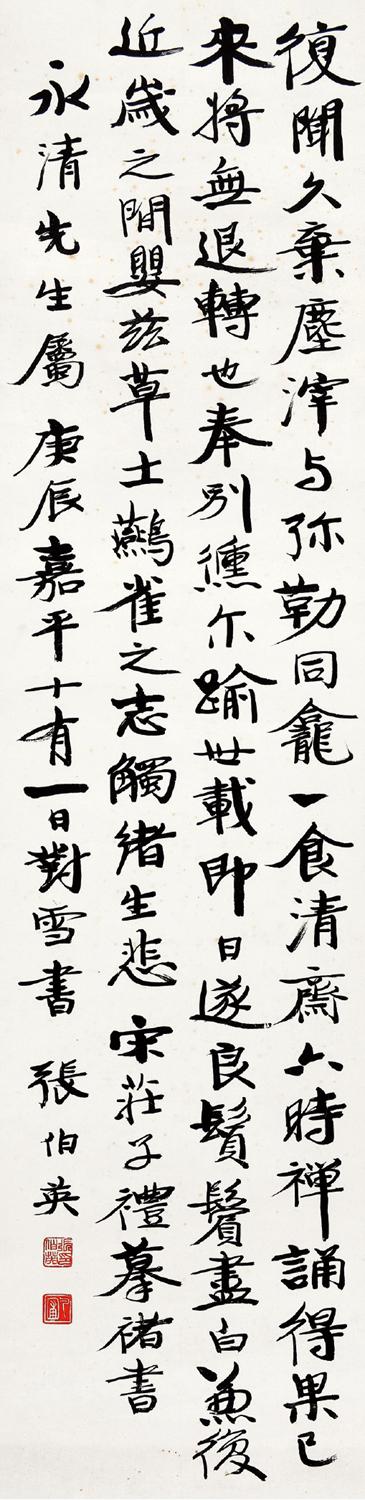 復聞久棄塵滓与弥勒同龕一食清齋六時禪誦得果已
來將無退轉也奉別儵尓踰世載即日遂良鬚鬢盡白兼復
近歲之間嬰茲草土鷰雀之志觸緒生悲 宋莊子禮摹褚書
永清先生屬 庚辰嘉平十有一日對雪書 張伯英